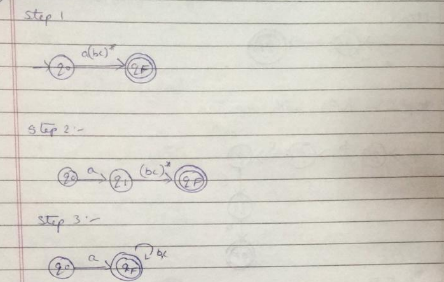 Step 1
q0 a(bc)* qF
Step 2:-
q0 a q1 (bc)* qF
Step 3:-
q0 a qF bc